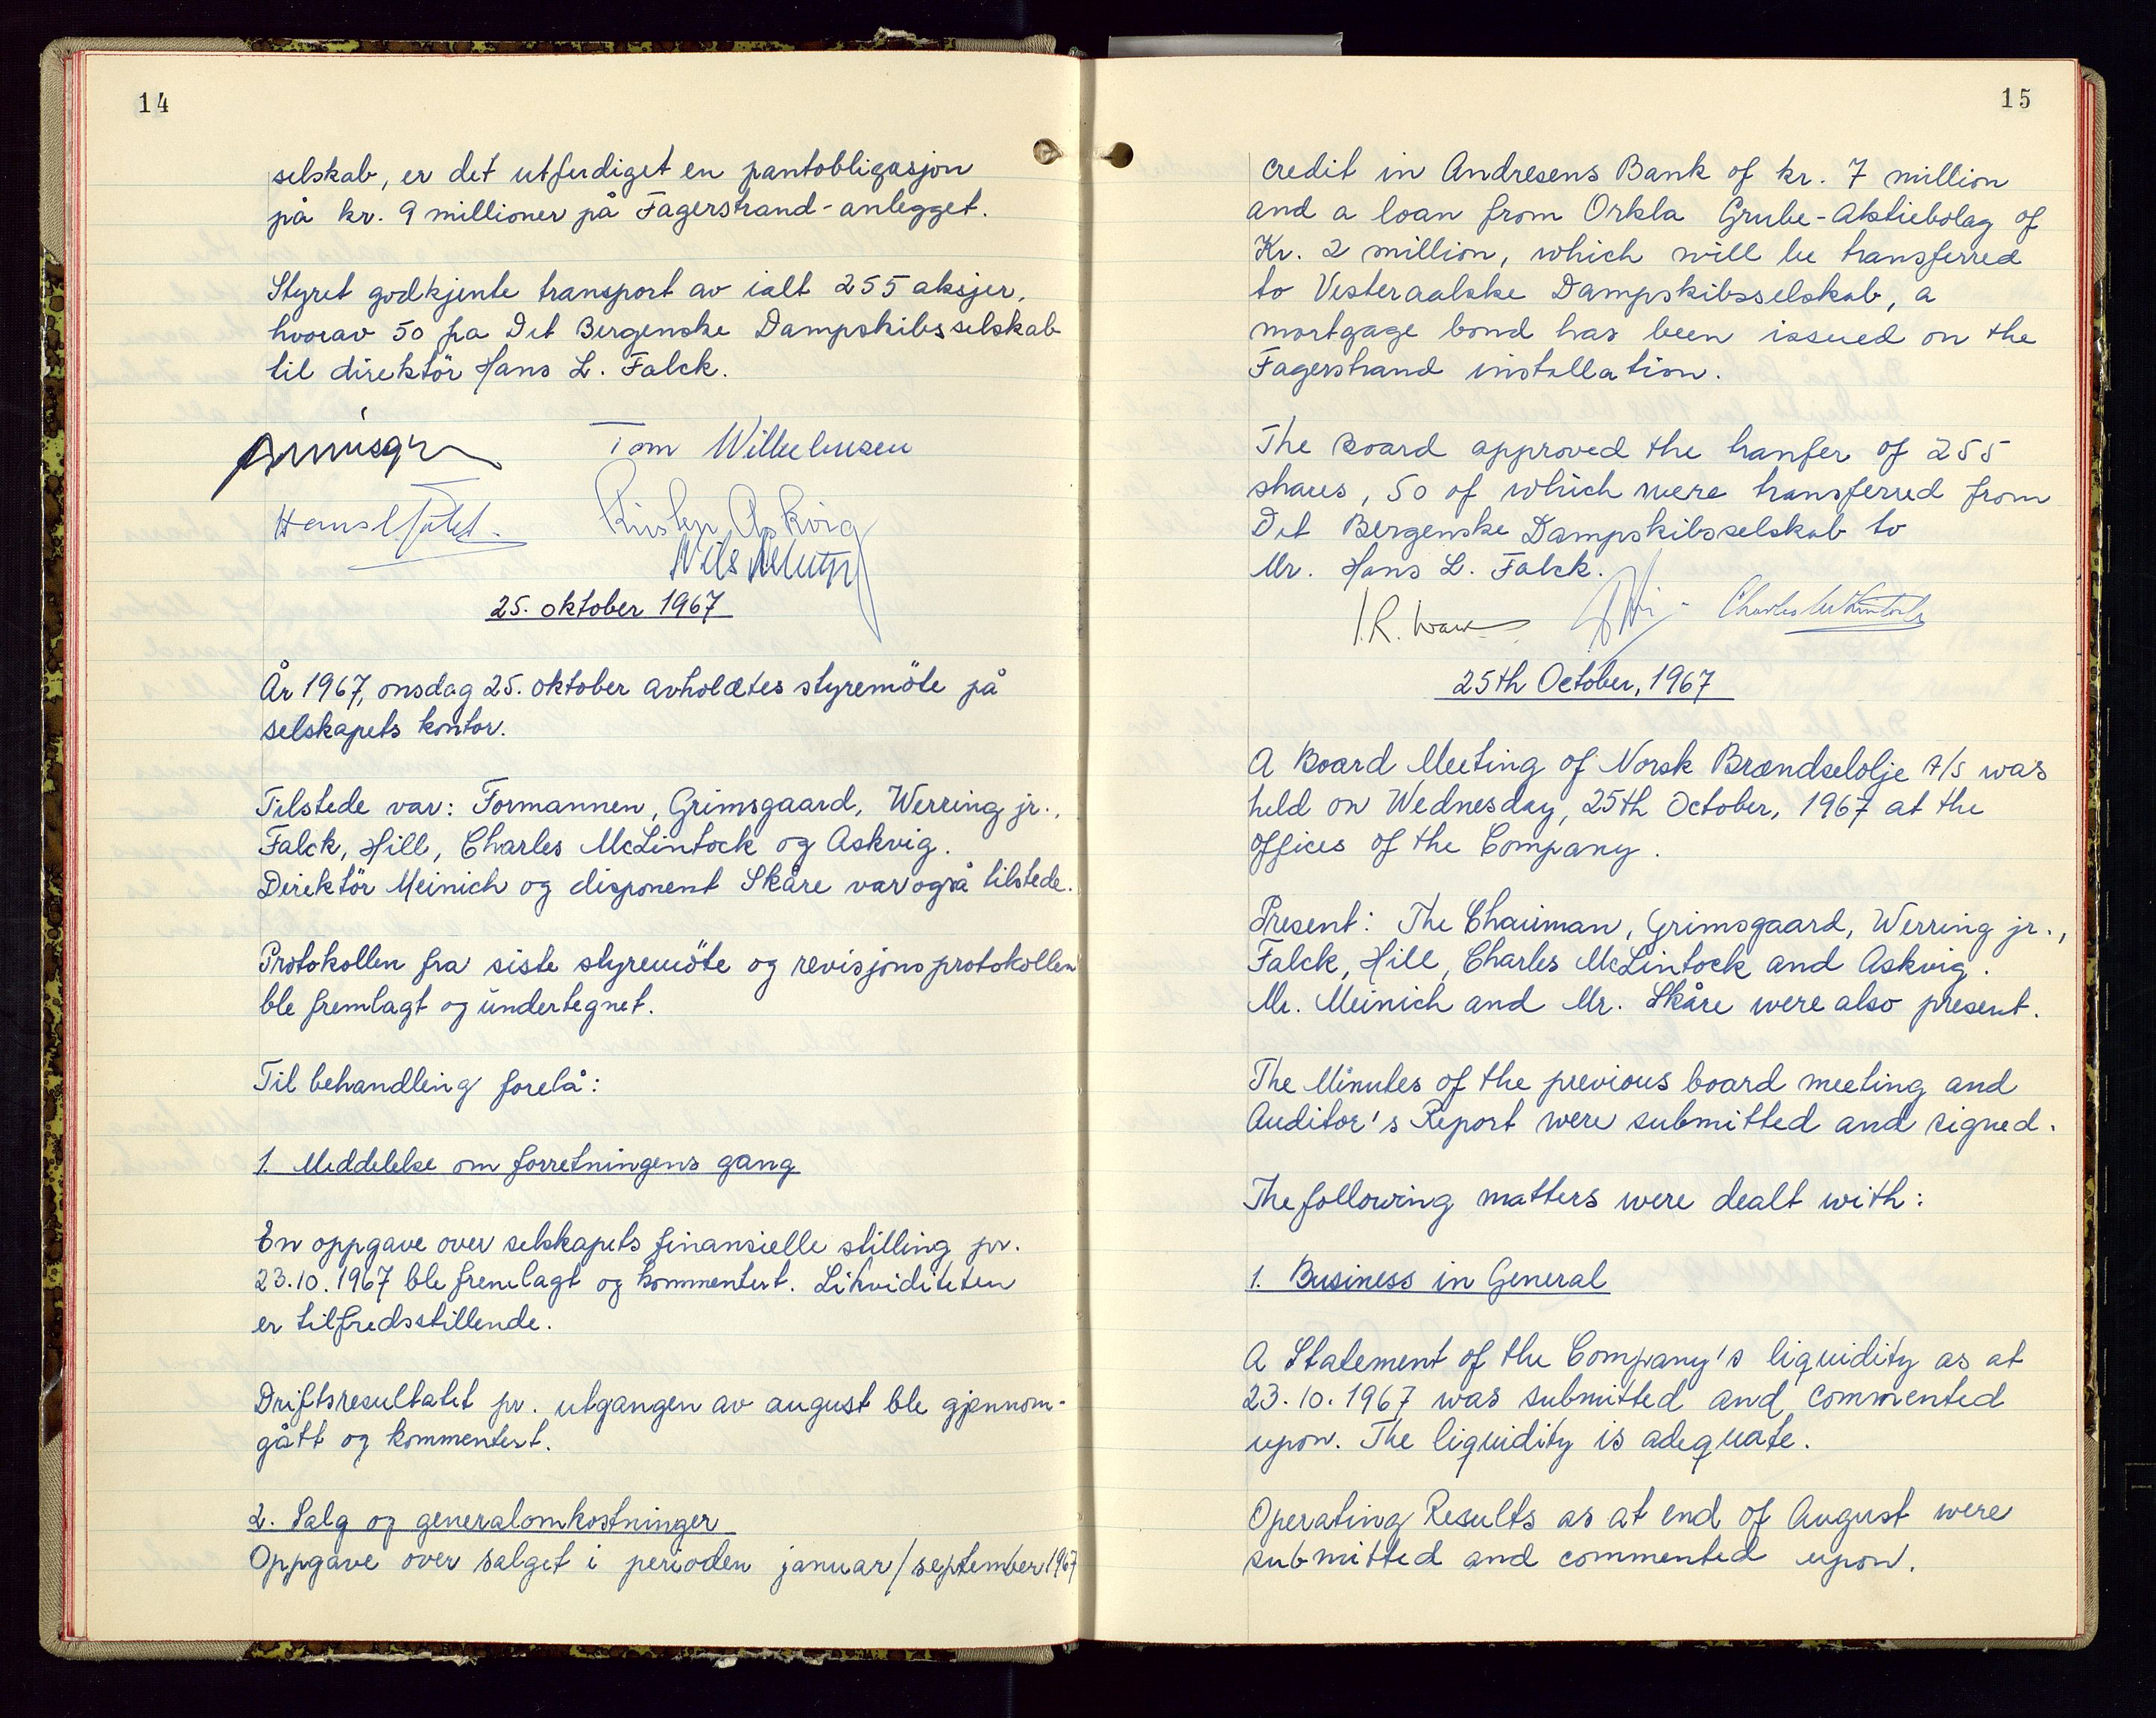 14
selskab, er det utferdiget en pantobligasjon
på kr. 9 millioner på Fagerstrand-anlegget.
Styret godkjente transport av ialt 255 aksjer,
hvorav 50 fra Det Bergenske Dampskibsselskab
til direktör Hans L. Falck.
Tom Wilhelmsen
Kirsten Askvig
25. oktober 1967
År 1967, onsdag 25. oktober avholdtes styremöte på
selskapets kontor.
Tilstede var: Formannen, Grimsgaard, Werring jr.,
Falck, Hill, Charles McLintock og Askvig.
Direktör Meinich og disponent Skåre var også tilstede.
Protokollen fra siste styremöte og revisjonsprotokollen
ble fremlagt og undertegnet.
Til behandling forelå:
1. Meddelelse om forretningens gang
En oppgave over selskapets finansielle stilling pr.
23.10.1967 ble fremlagt og kommentert. Likviditeten
er tilfredsstillende.
Driftsresultatet pr. utgangen av august ble gjennom-
gått og kommentert.
2. Salg og generalomkostninger
Oppgave over salget i perioden januar/september 1967
15
credit in Andresens Bank of kr. 7 million
and a loan from Orkla Grube-Aktiebolag of
Kr. 2 million, which will be transferred
to Vesteraalske Dampskibsselskab, a
mortgage bond has been issued on the
Fagerstrand installation.
The Board approved the tranfer of 255
shares, 50 of which were transferred from
Det Bergenske Dampskibsselskab to
Mr. Hans L. Falck.
Charles McLintock
25th October, 1967
A Board Meeting of Norsk Brændselolje A/S was
held on Wednesday, 25th October, 1967 at the
offices of the Company.
Present: The Chairman, Grimsgaard, Werring jr.,
Falck, Hill, Charles McLintock and Askvig.
Mr. Meinich and Mr. Skåre were also present.
The Minutes of the previous board meeting and
Auditor's Report were submitted and signed.
The following matters were dealt with:
1. Business in General
A Statement of the Company's liquidity as at
23.10.1967 was submitted and commented
upon. The liquidity is adequate.
Operating Results as at end of August were
submitted and commented upon.